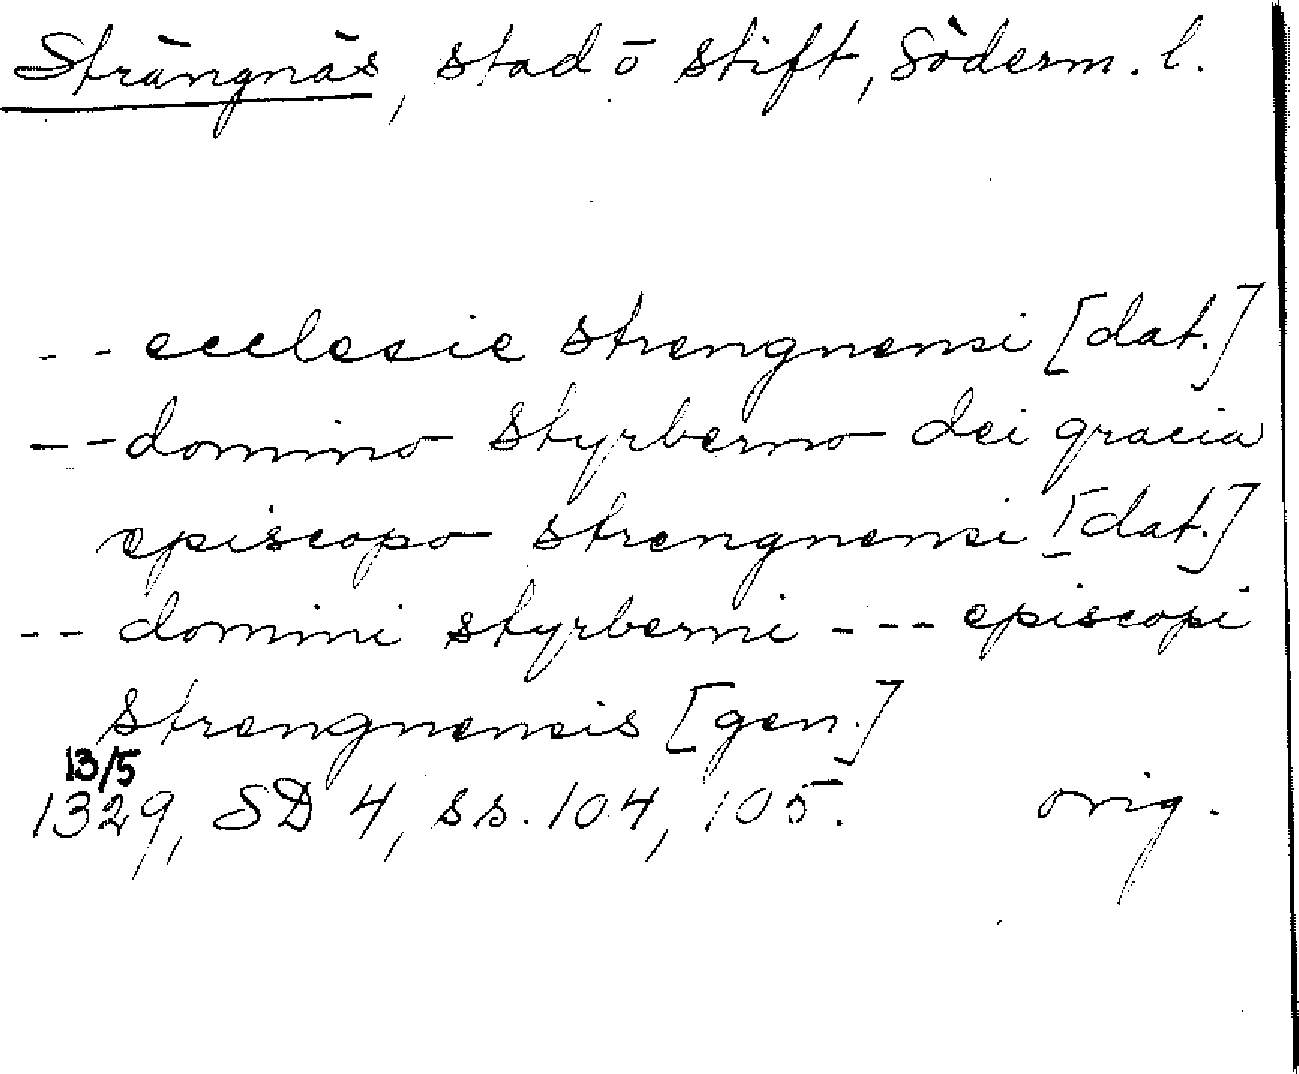 Strängnäs, stad ō stift, Söderm. l.
-- ecclesie strengnensi [dat.]
-- domino Styrberno dei gracia
episcopo strengnensi [dat.]
-- domini styrberni --- episcopi
strengnensis [gen.]
13/5
1329, SD 4, ss. 104, 105. orig.